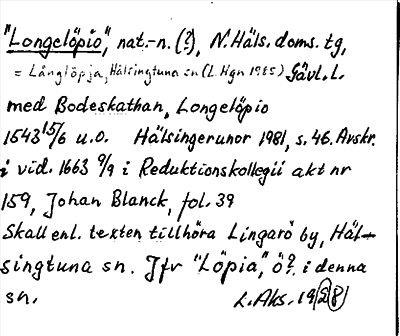 "Longelöpio", nat.-n. (?), N. Häls. doms. tg,
= Långlöpja, Hälsingtuna sn (L. Hgn 1985) Gävl. L.
med Bodeskathan, Longelöpio
1543 15/6 u.o. Hälsingerunor 1981, s. 46. Avskr.
i vid. 1663 9/9 i Reduktionskollegii akt nr
159, Johan Blanck, fol. 39
Skall enl. texten tillhöra Lingarö by, Häl-
singtuna sn. Jfr "Löpia", ö?. i denna
sn. L. Aks. 1981